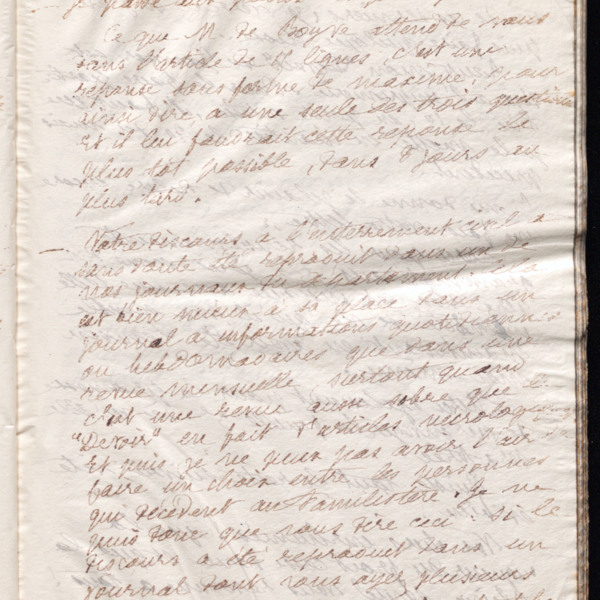 Ce que M. de Boyve attend de vous
dans l'article de 15 lignes, c'est une
réponse sous forme de maxime, pour
ainsi dire, à une seule des trois questions
Et il leur faudrait cette réponse le
plus tôt possible, dans 8 jours au
plus tard.
— Votre discours à l'enterrement civil a
sans doute été reproduit dans un de
vos journaux du département. Cela
est bien mieux à sa place dans un
journal à informations quotidiennes
ou hebdomadaires que dans une
revue mensuelle, surtout quand
c'est une revue aussi sobre que le
"Devoir" en fait d'articles nécrologiques
Et puis je ne puis pas avoir l'air de
faire un choix entre les personnes
qui décèdent au Familistère. Je ne
puis donc que vous dire ceci : si le
discours a été reproduit dans un
journal dont vous ayez plusieurs